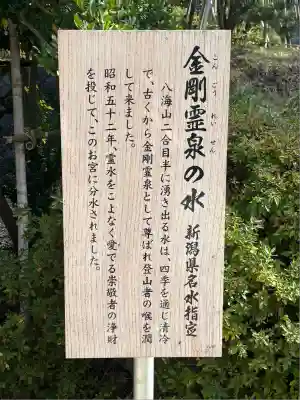 金剛霊泉の水 新潟県名水指定
こんごうれいせん
八海山二合目半に湧き出る水は、四季を通じ清冷
で、古くから金剛霊泉として尊ばれ登山者の喉を潤
して来ました。
昭和五十二年、霊水をこよなく愛でる崇敬者の浄財
を投じて、このお宮に分水されました。